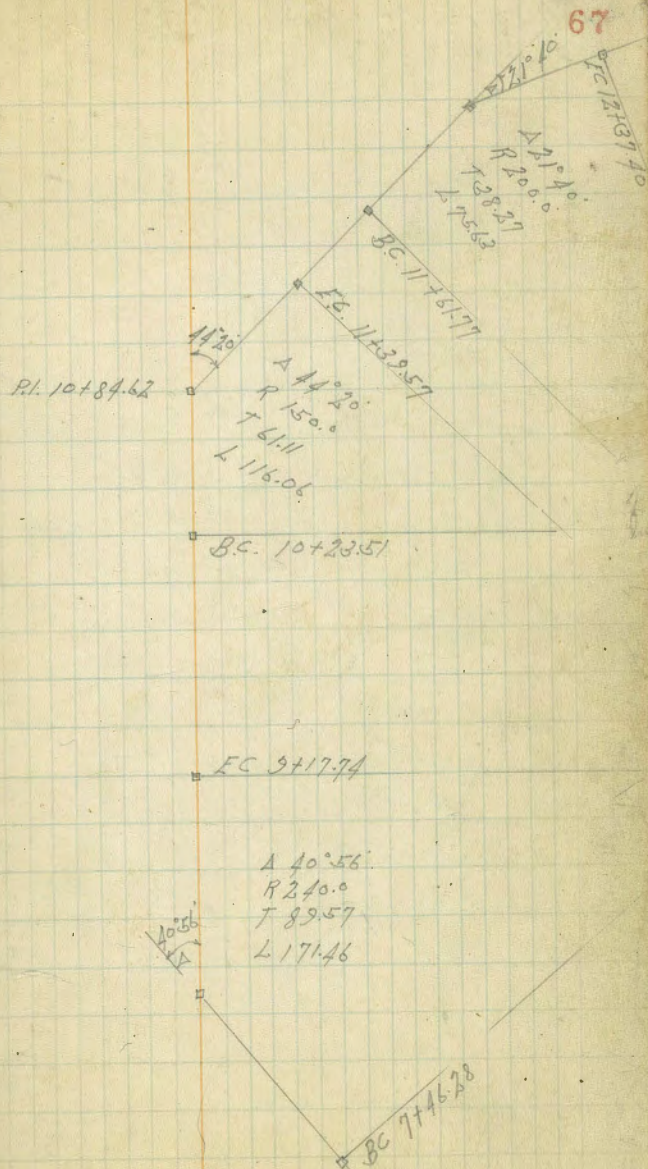 67
Δ 21° 40'
EC 12+37.40
Δ 21° 40'
R 200.0
T 38.27
L 75.63
B.C. 11+61.77
E.C. 11+39.57
44°20'
P.I. 10+84.62
Δ 44°20'
R 150.0
T 61.11
L 116.06
B.C. 10+23.51
EC 9+17.74
Δ 40°56'
R 240.0
T 89.57
L 171.46
40°56'
Δ
BC 7+46.28